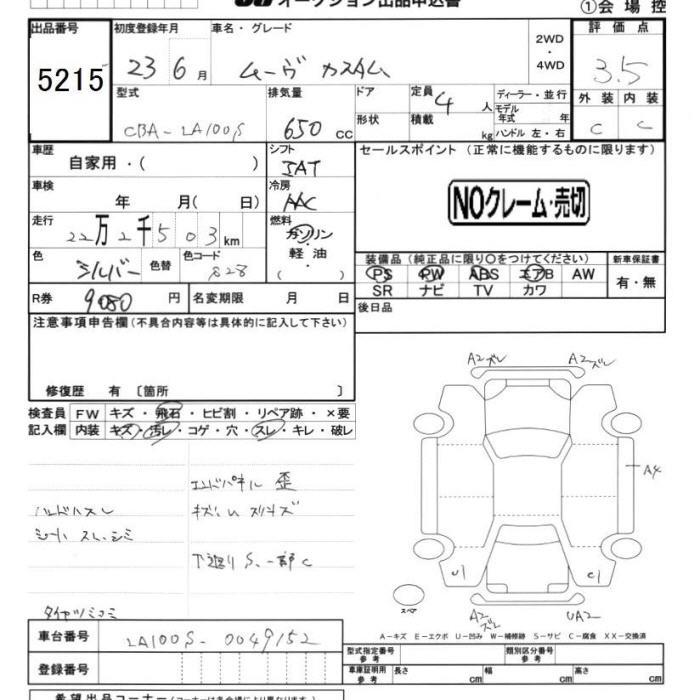 オークション出品申込書
①会場控
出品番号 初度登録年月 車名・グレード 評価点
5215 23 6月 ムーヴ カスタム 2WD・4WD 3.5
型式 排気量 ドア 定員 4人 ディーラー・並行 外装 内装
CBA-LA100S 650cc 形状 積載 kg モデル年式 年 ハンドル 左・右 C C
車歴 シフト セールスポイント (正常に機能するものに限ります)
自家用・( ) IAT
車検 冷房 NOクレーム・売切
年 月( 日) AAC
走行 燃料
22万2千503km ガソリン・軽油・( )
色 シルバー 色替 色コード S28
装備品(純正品に限り○をつけてください) 新車保証書
PS PW ABS エアB AW 有・無
SR ナビ TV カワ
R券 9080円 名変期限 月 日 後日品
注意事項申告欄(不具合内容等は具体的に記入して下さい)
修復歴 有〔箇所 〕
検査員 FW キズ・飛石・ヒビ割・リペア跡・×要
記入欄 内装 キズ・汚レ・コゲ・穴・スレ・キレ・破レ
エンドパネル 歪
ハンドルスレ キズ凹 スリキズ
シート スレ、シミ
下廻り S、一部C
A2ズレ A2ズレ
A4
U1 C1
スペア
A2ズレ UA2
A-キズ E-エクボ U-凹み W-補修跡 S-サビ C-腐食 XX-交換済
車台番号 LA100S-0049152
型式指定番号 参考 類別区分番号 参考
登録番号 車庫証明用 参考 長さ cm 幅 cm 高さ cm
希望出品コーナー